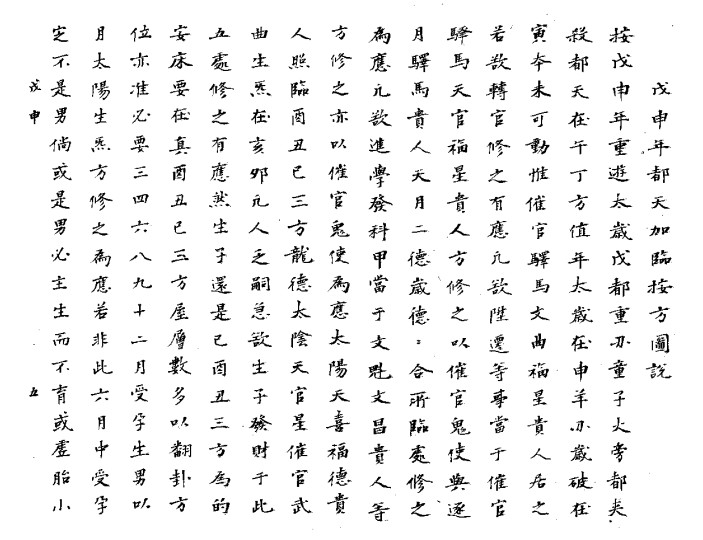 戊申年都天加臨按方圖說
按戊申年重遊太歲戊都重刃童子火旁都夹
殺都天在午丁方值年太歲在申羊刃歲破在
寅本未可動惟催官驛馬文曲福星貴人居之
若欲轉官修之有應凢欲陞遷等事當于催官
驛馬天官福星貴人方修之以催官鬼使與逐
月驛馬貴人天月二德歲德〻合所臨處修之
為應凢欲進學發科甲當于文魁文昌貴人等
方修之亦以催官鬼使為應太陽天喜福德貴
人照臨酉丑巳三方龍德太陰天官星催官武
曲生炁在亥卯凢人乏嗣急欲生子發財于此
五處修之有應然生子還是巳酉丑三方為的
安床要在真酉丑巳三方屋層數多以翻卦方
位亦准必要三四六八九十二月受孕生男以
月太陽生炁方修之為應若非此六月中受孕
定不是男倘或是男必主生而不育或虛胎小
戊申
五